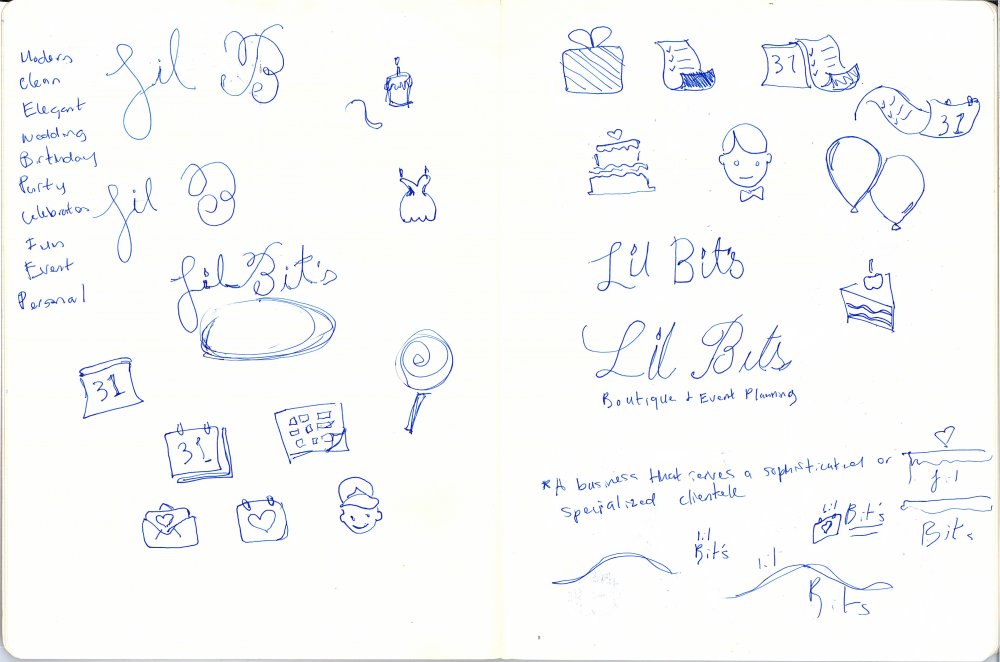 Modern
Clean
Elegant
Wedding
Birthday
Party
Celebration
Fun
Event
Personal
Lil B
Lil B
Lil Bit's
31
31
31
31
Lil Bits
Lil Bits
Boutique & Event Planning
*A business that serves a sophisticated or
specialized clientele
Lil
Bits
Lil
Bit's
Lil
Bit's
Lil
Bits